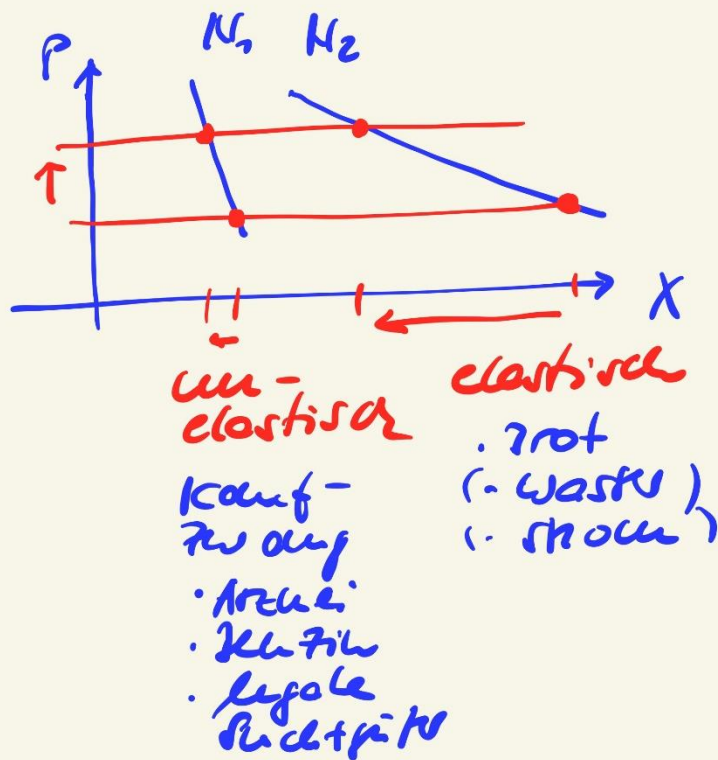 P
N₁ N₂
X
un-
elastisch
elastisch
Kauf-
zwang
• Arznei
• Benzin
• legale
Suchtgüter
• Brot
(• Wasser)
(• Strom)